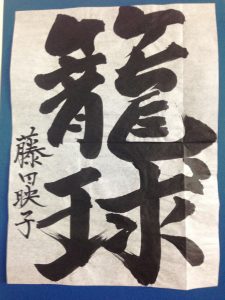 籠球
藤田映子